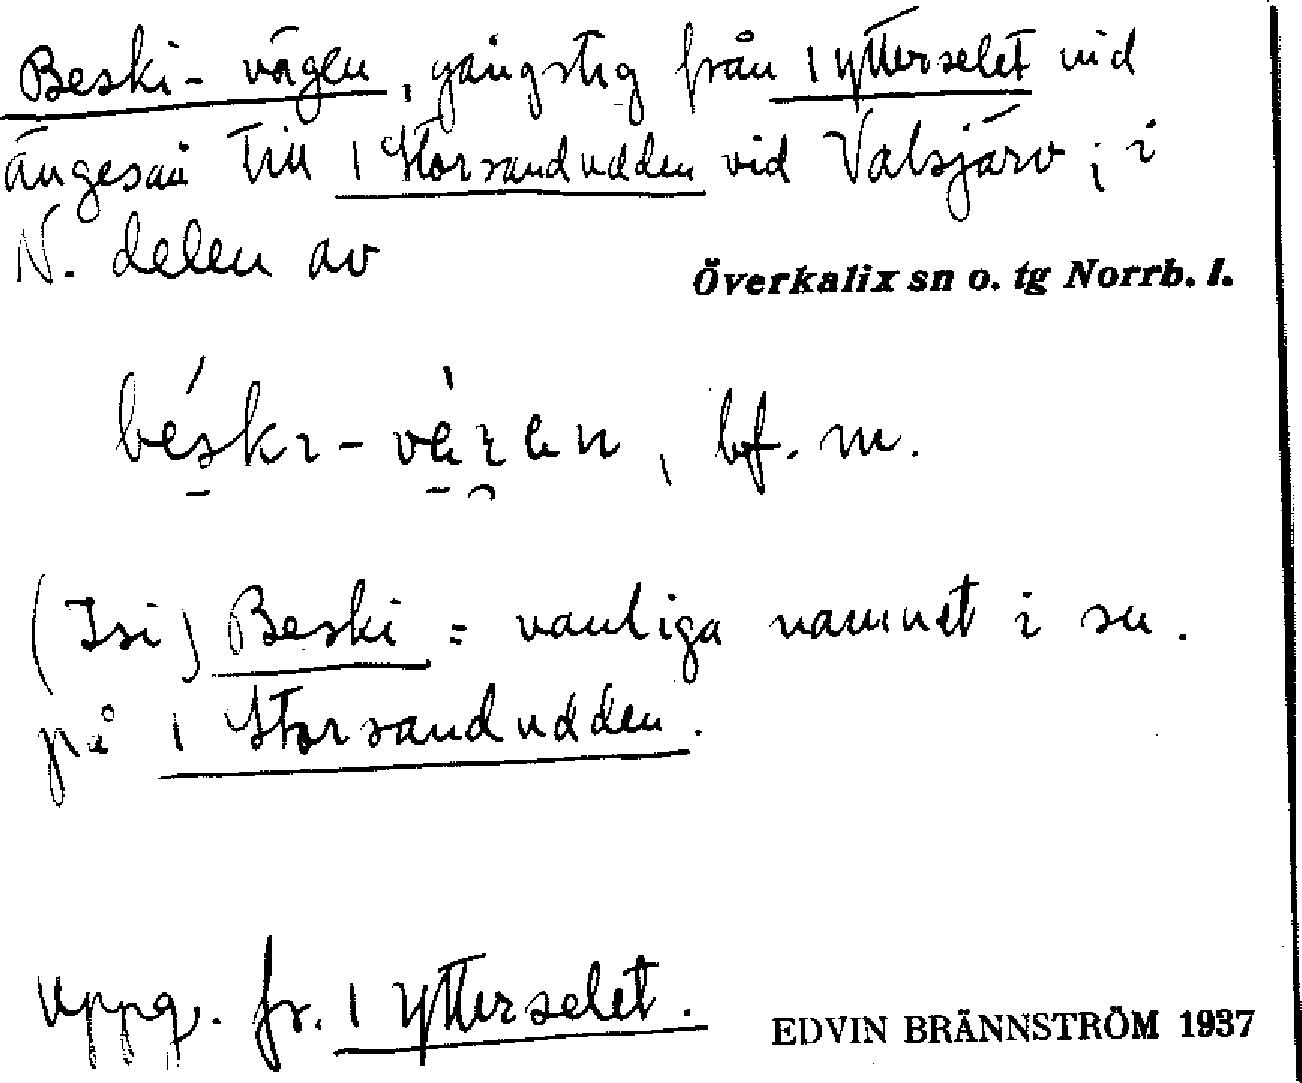 Beski-vägen, gångstig från 1 ytterselet vid
ängesån till 1 Storsandudden vid Valsjärv; i
N. delen av
Överkalix sn o. tg Norrb. l.
bf. m.
(Isi) Beski = vanliga namnet i sn.
på 1 Storsandudden.
uppg. fr. 1 ytterselet.
EDVIN BRÄNNSTRÖM 1937